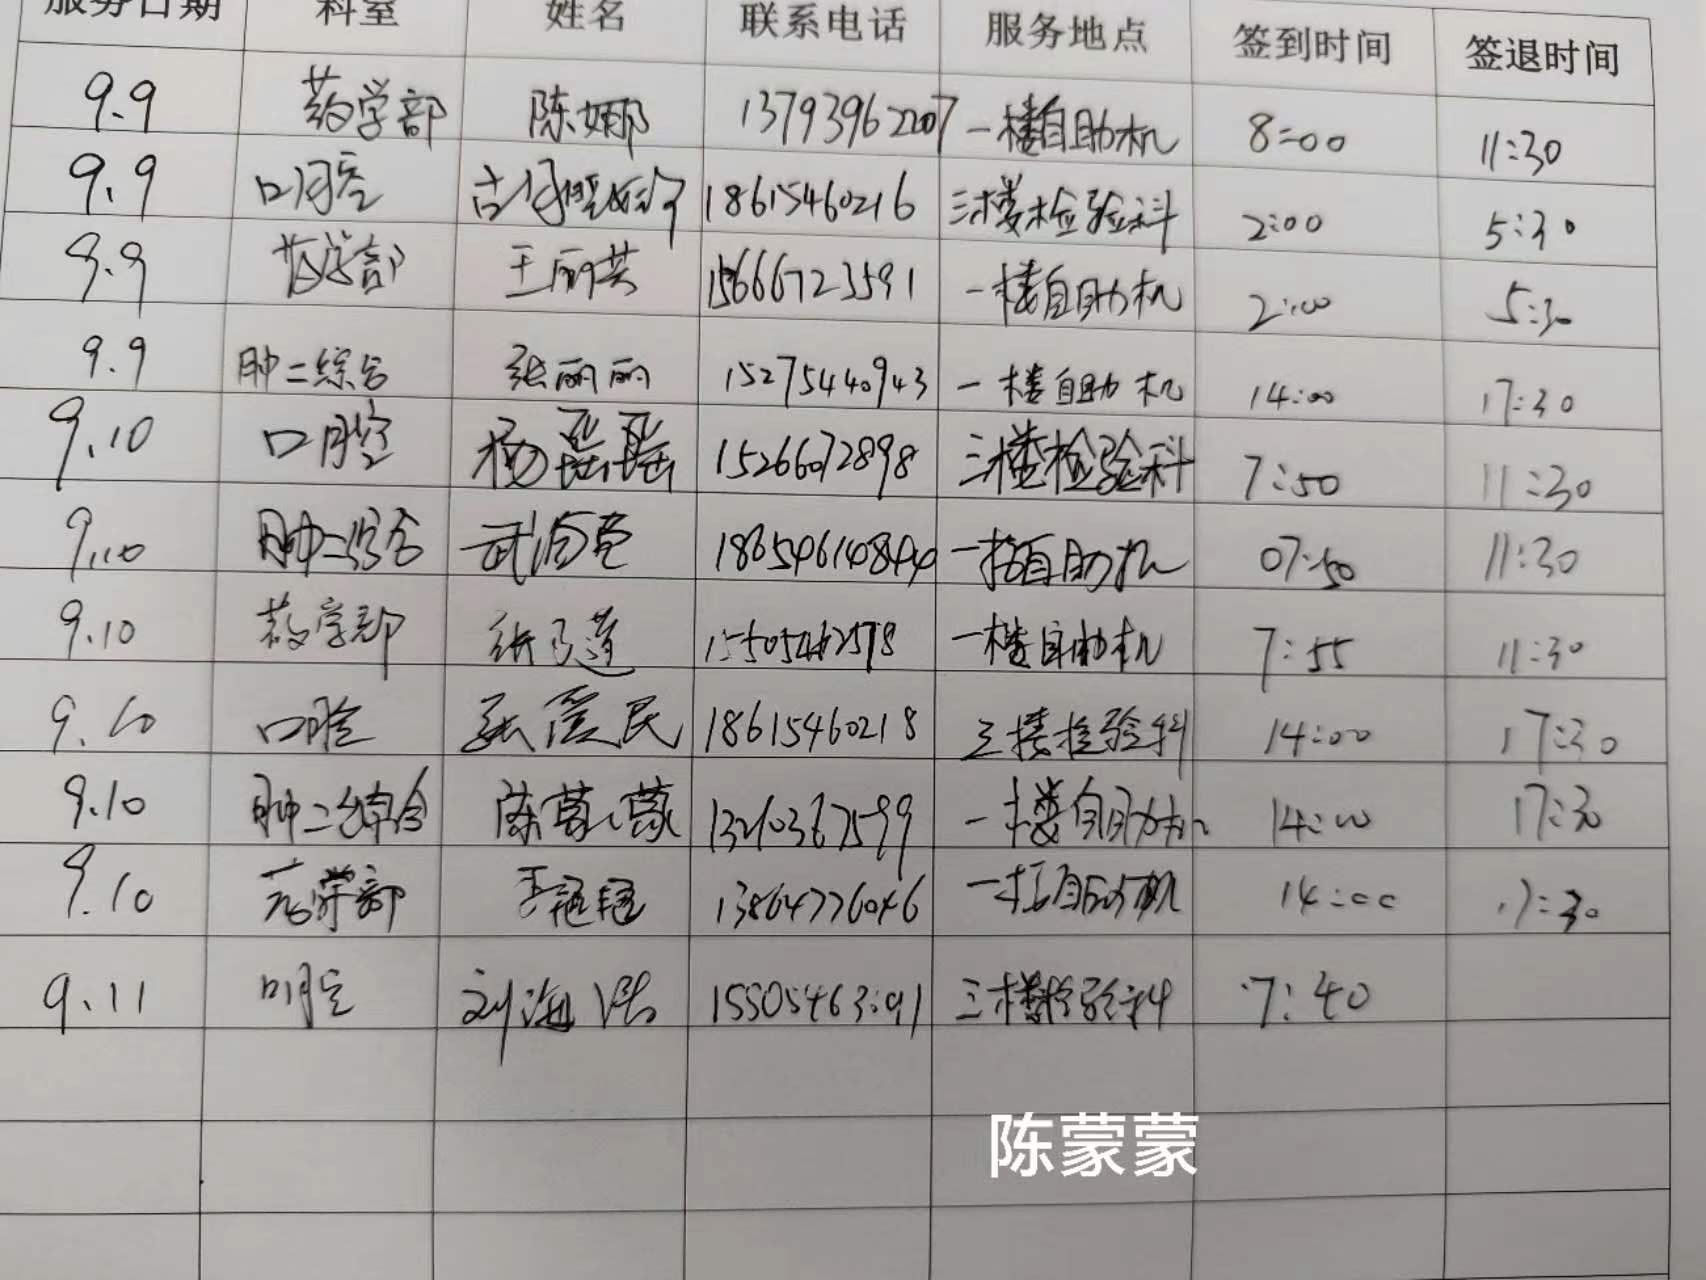 服务日期 科室 姓名 联系电话 服务地点 签到时间 签退时间
9.9 药学部 陈娜 13793962207 一楼自助机 8:00 11:30
9.9 口腔 18615460216 三楼检验科 2:00 5:30
9.9 药学部 王丽英 15666723591 一楼自助机 2:00 5:30
9.9 肿二综合 张丽丽 15275440943 一楼自助机 14:00 17:30
9.10 口腔 杨磊磊 15266072898 三楼检验科 7:50 11:30
9.10 肿二综合 一楼自助机 07:50 11:30
9.10 药学部 一楼自助机 7:55 11:30
9.10 口腔 张爱民 18615460218 三楼检验科 14:00 17:30
9.10 肿二综合 陈蒙蒙 一楼自助机 14:00 17:30
9.10 药学部 13864776046 一楼自助机 14:00 17:30
9.11 口腔 刘海 三楼检验科 7:40
陈蒙蒙